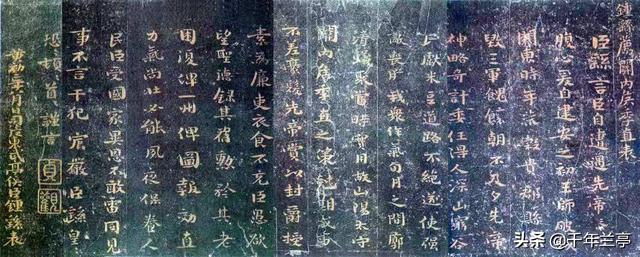 鍾繇薦關內侯季直表
臣繇言臣自遭遇先帝忝列
腹心爰自建安之初王師破賊
關東時年荒穀貴郡縣殘
毀三軍餽饟朝不及夕先帝
神略奇計委任得人深山窮谷
民獻米豆道路不絕遂使強
敵喪膽我眾作氣旬月之間廓
清蟻聚當時實用故山陽太守
關內侯季直之策剋期成事
不差豪髮先帝賞以封爵授
素為廉吏衣食不充臣愚欲
望聖德錄其舊勳矜其老
困復俾一州俾圖報效直
力氣尚壯必能夙夜保養人
民臣受國家異恩不敢雷同見
事不言干犯宸嚴臣繇皇
恐頓首謹言
貞觀
黃初二年八月日司徒東武亭侯臣鍾繇表
头条 @千年兰亭